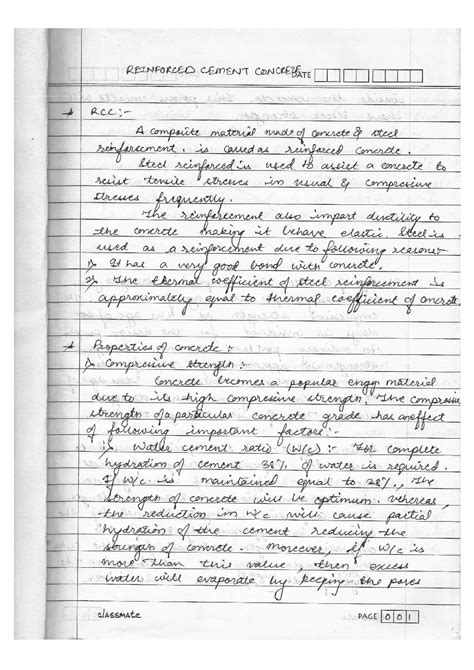 REINFORCED CEMENT CONCRETE
DATE
→ RCC:-
A composite material made of concrete & steel
reinforcement. is called as reinforced concrete.
Steel reinforced is used to assist a concrete to
resist tensile stresses in usual & compressive
stresses frequently.
The reinforcement also impart ductility to
the concrete making it behave elastic. Steel is
used as a reinforcement due to following reasons:-
1) It has a very good bond with concrete.
2) The thermal coefficient of steel reinforcement is
approximately equal to thermal coefficient of concrete.
* Properties of concrete :-
1) Compressive strength :-
Concrete becomes a popular engg material
due to its high compressive strength. The compressive
strength of a particular concrete grade has an effect
of following important factors:-
i) Water cement ratio (W/c) :- For complete
hydration of cement 38% of water is required.
If W/c is maintained equal to 38%, The
strength of concrete will be optimum. Whereas,
the reduction in w/c will cause partial
hydration of the cement reducing the
strength of concrete. Moreover, if W/c is
more than this value, then excess
water will evaporate by keeping the pores
classmate
PAGE 001